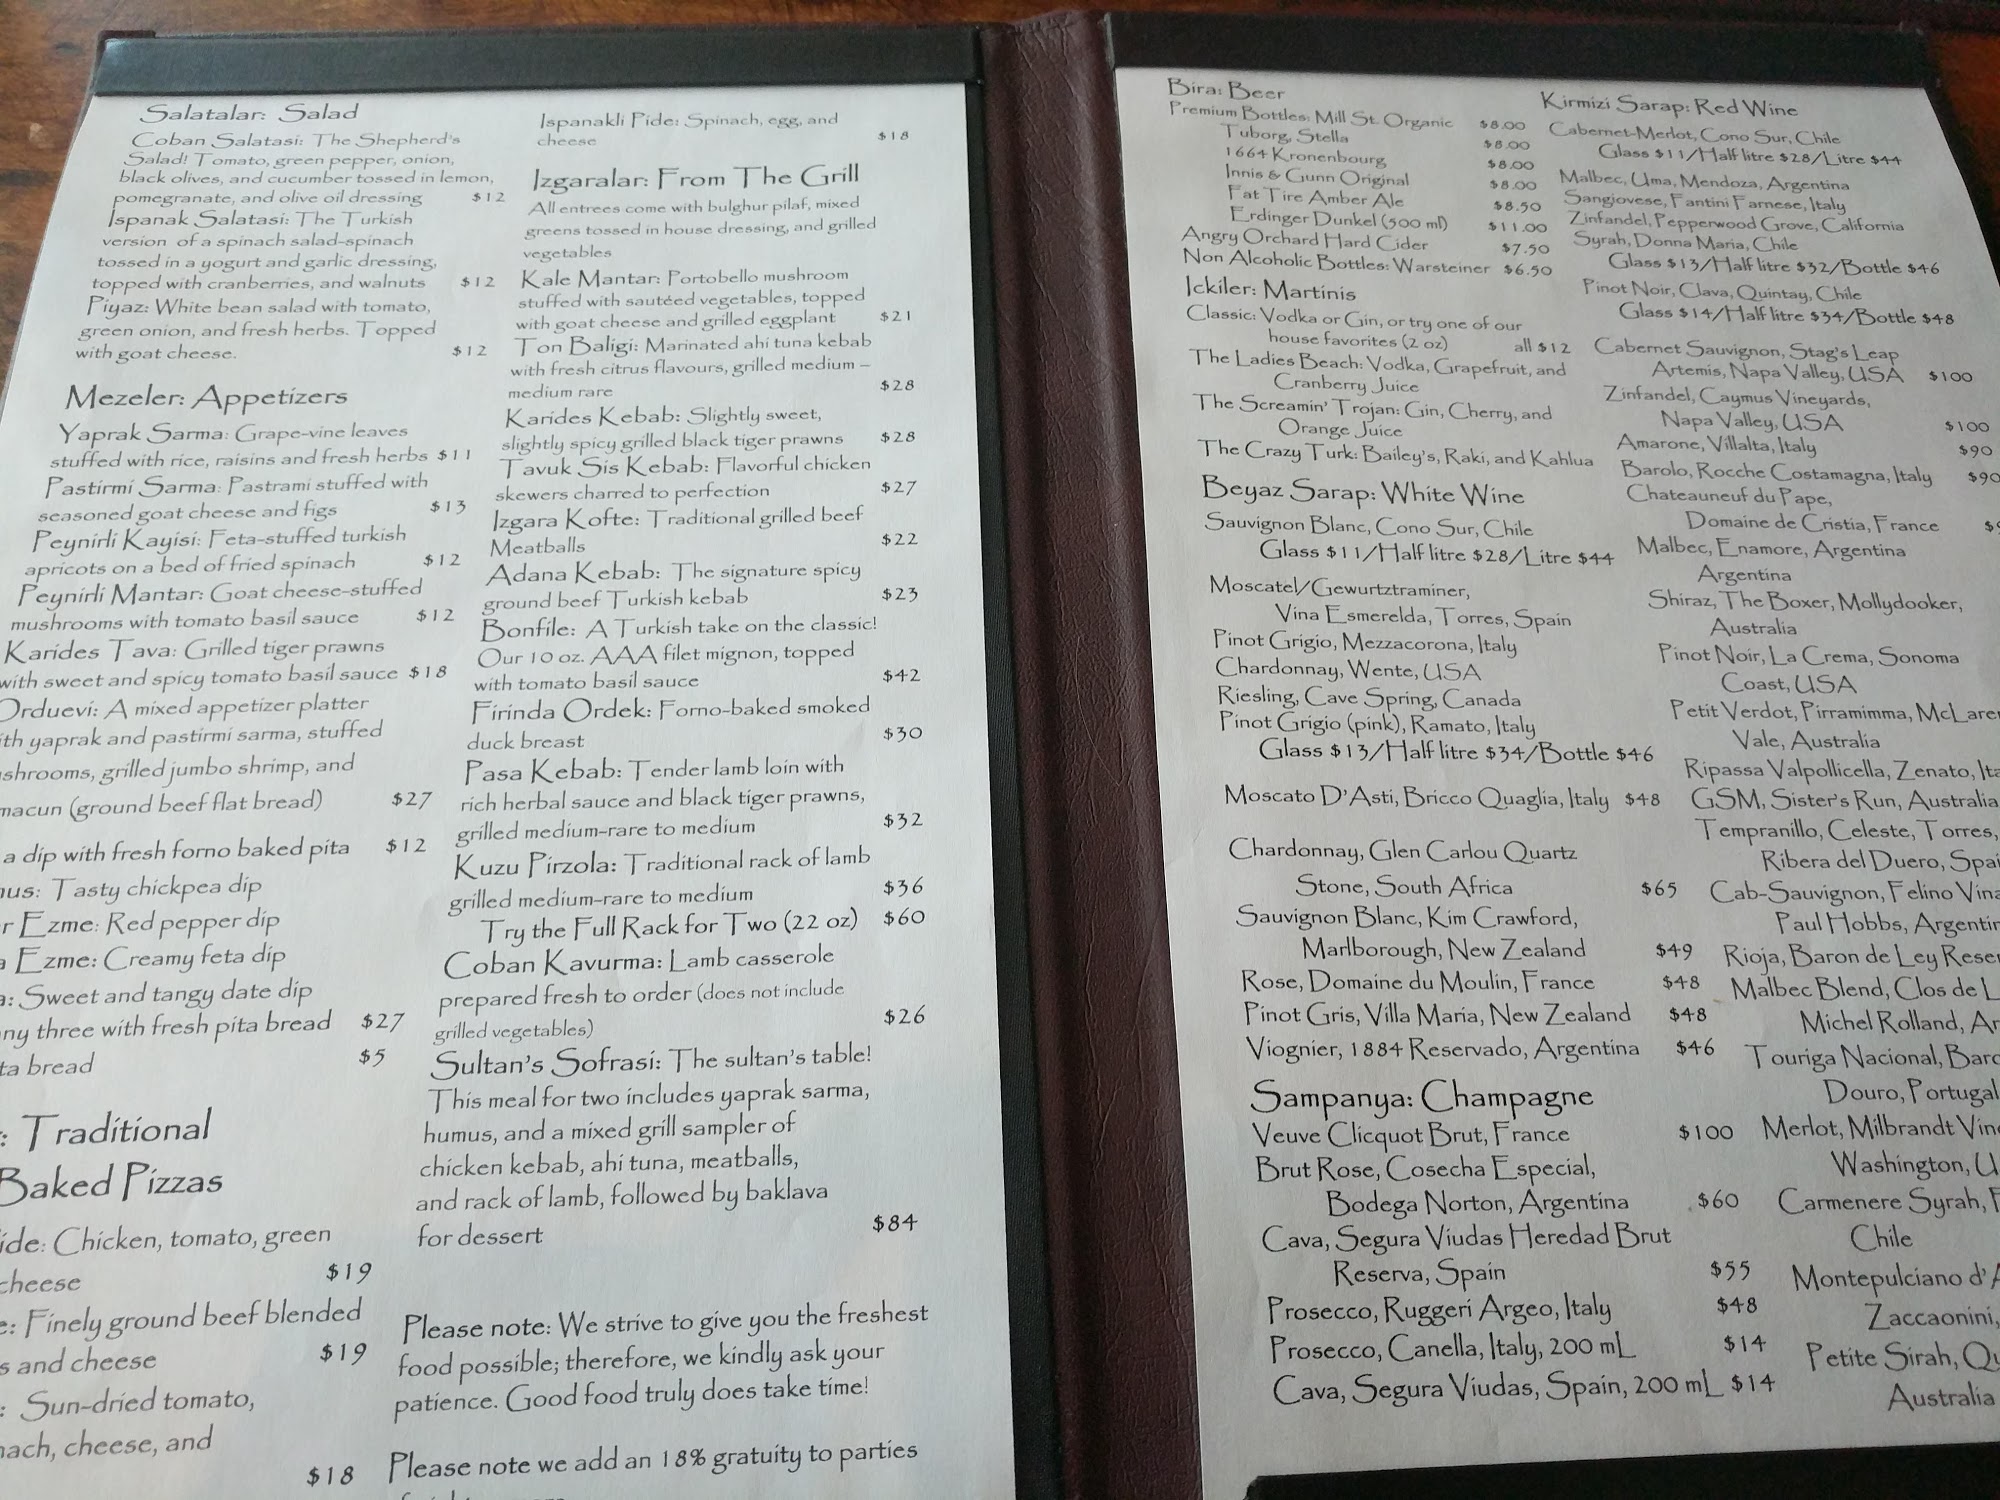 Salatalar: Salad
Coban Salatasi: The Shepherd's
Salad! Tomato, green pepper, onion,
black olives, and cucumber tossed in lemon,
pomegranate, and olive oil dressing $12
Ispanak Salatasi: The Turkish
version of a spinach salad-spinach
tossed in a yogurt and garlic dressing,
topped with cranberries, and walnuts $12
Piyaz: White bean salad with tomato,
green onion, and fresh herbs. Topped
with goat cheese. $12
Mezeler: Appetizers
Yaprak Sarma: Grape-vine leaves
stuffed with rice, raisins and fresh herbs $11
Pastirmi Sarma: Pastrami stuffed with
seasoned goat cheese and figs $13
Peynirli Kayisi: Feta-stuffed turkish
apricots on a bed of fried spinach $12
Peynirli Mantar: Goat cheese-stuffed
mushrooms with tomato basil sauce $12
Karides Tava: Grilled tiger prawns
with sweet and spicy tomato basil sauce $18
Orduevi: A mixed appetizer platter
yaprak and pastirmi sarma, stuffed
grilled jumbo shrimp, and
(ground beef flat bread) $27
a dip with fresh forno baked pita $12
Tasty chickpea dip
Ezme: Red pepper dip
Ezme: Creamy feta dip
Sweet and tangy date dip
three with fresh pita bread $27
bread $5
: Traditional
Baked Pizzas
Chicken, tomato, green
cheese $19
Finely ground beef blended
and cheese $19
: Sun-dried tomato,
cheese, and
$18
Ispanakli Pide: Spinach, egg, and
cheese $18
Izgaralar: From The Grill
All entrees come with bulghur pilaf, mixed
greens tossed in house dressing, and grilled
vegetables
Kale Mantar: Portobello mushroom
stuffed with sautéed vegetables, topped
with goat cheese and grilled eggplant $21
Ton Baligi: Marinated ahi tuna kebab
with fresh citrus flavours, grilled medium –
medium rare $28
Karides Kebab: Slightly sweet,
slightly spicy grilled black tiger prawns $28
Tavuk Sis Kebab: Flavorful chicken
skewers charred to perfection $27
Izgara Kofte: Traditional grilled beef
Meatballs $22
Adana Kebab: The signature spicy
ground beef Turkish kebab $23
Bonfile: A Turkish take on the classic!
Our 10 oz. AAA filet mignon, topped
with tomato basil sauce $42
Firinda Ordek: Forno-baked smoked
duck breast $30
Pasa Kebab: Tender lamb loin with
rich herbal sauce and black tiger prawns,
grilled medium-rare to medium $32
Kuzu Pirzola: Traditional rack of lamb
grilled medium-rare to medium $36
Try the Full Rack for Two (22 oz) $60
Coban Kavurma: Lamb casserole
prepared fresh to order (does not include
grilled vegetables) $26
Sultan's Sofrasi: The sultan's table!
This meal for two includes yaprak sarma,
humus, and a mixed grill sampler of
chicken kebab, ahi tuna, meatballs,
and rack of lamb, followed by baklava
for dessert $84
Please note: We strive to give you the freshest
food possible; therefore, we kindly ask your
patience. Good food truly does take time!
Please note we add an 18% gratuity to parties
Bira: Beer
Premium Bottles: Mill St. Organic $8.00
Tuborg, Stella $8.00
1664 Kronenbourg $8.00
Innis & Gunn Original $8.00
Fat Tire Amber Ale $8.50
Erdinger Dunkel (500 ml) $11.00
Angry Orchard Hard Cider $7.50
Non Alcoholic Bottles: Warsteiner $6.50
Ickiler: Martinis
Classic: Vodka or Gin, or try one of our
house favorites (2 oz) all $12
The Ladies Beach: Vodka, Grapefruit, and
Cranberry Juice
The Screamin' Trojan: Gin, Cherry, and
Orange Juice
The Crazy Turk: Bailey's, Raki, and Kahlua
Beyaz Sarap: White Wine
Sauvignon Blanc, Cono Sur, Chile
Glass $11/Half litre $28/Litre $44
Moscatel/Gewurtztraminer,
Vina Esmerelda, Torres, Spain
Pinot Grigio, Mezzacorona, Italy
Chardonnay, Wente, USA
Riesling, Cave Spring, Canada
Pinot Grigio (pink), Ramato, Italy
Glass $13/Half litre $34/Bottle $46
Moscato D'Asti, Bricco Quaglia, Italy $48
Chardonnay, Glen Carlou Quartz
Stone, South Africa $65
Sauvignon Blanc, Kim Crawford,
Marlborough, New Zealand $49
Rose, Domaine du Moulin, France $48
Pinot Gris, Villa Maria, New Zealand $48
Viognier, 1884 Reservado, Argentina $46
Sampanya: Champagne
Veuve Clicquot Brut, France $100
Brut Rose, Cosecha Especial,
Bodega Norton, Argentina $60
Cava, Segura Viudas Heredad Brut
Reserva, Spain $55
Prosecco, Ruggeri Argeo, Italy $48
Prosecco, Canella, Italy, 200 mL $14
Cava, Segura Viudas, Spain, 200 mL $14
Kirmizi Sarap: Red Wine
Cabernet-Merlot, Cono Sur, Chile
Glass $11/Half litre $28/Litre $44
Malbec, Uma, Mendoza, Argentina
Sangiovese, Fantini Farnese, Italy
Zinfandel, Pepperwood Grove, California
Syrah, Donna Maria, Chile
Glass $13/Half litre $32/Bottle $46
Pinot Noir, Clava, Quintay, Chile
Glass $14/Half litre $34/Bottle $48
Cabernet Sauvignon, Stag's Leap
Artemis, Napa Valley, USA $100
Zinfandel, Caymus Vineyards,
Napa Valley, USA $100
Amarone, Villalta, Italy $90
Barolo, Rocche Costamagna, Italy $90
Chateauneuf du Pape,
Domaine de Cristia, France
Malbec, Enamore, Argentina
Argentina
Shiraz, The Boxer, Mollydooker,
Australia
Pinot Noir, La Crema, Sonoma
Coast, USA
Petit Verdot, Pirramimma,
Vale, Australia
Ripassa Valpollicella, Zenato,
GSM, Sister's Run, Australia
Tempranillo, Celeste, Torres,
Ribera del Duero,
Cab-Sauvignon, Felino
Paul Hobbs,
Rioja, Baron de Ley
Malbec Blend, Clos de
Michel Rolland,
Touriga Nacional,
Douro, Portugal
Merlot, Milbrandt
Washington,
Carmenere Syrah,
Chile
Montepulciano
Zaccaonini,
Petite Sirah,
Australia